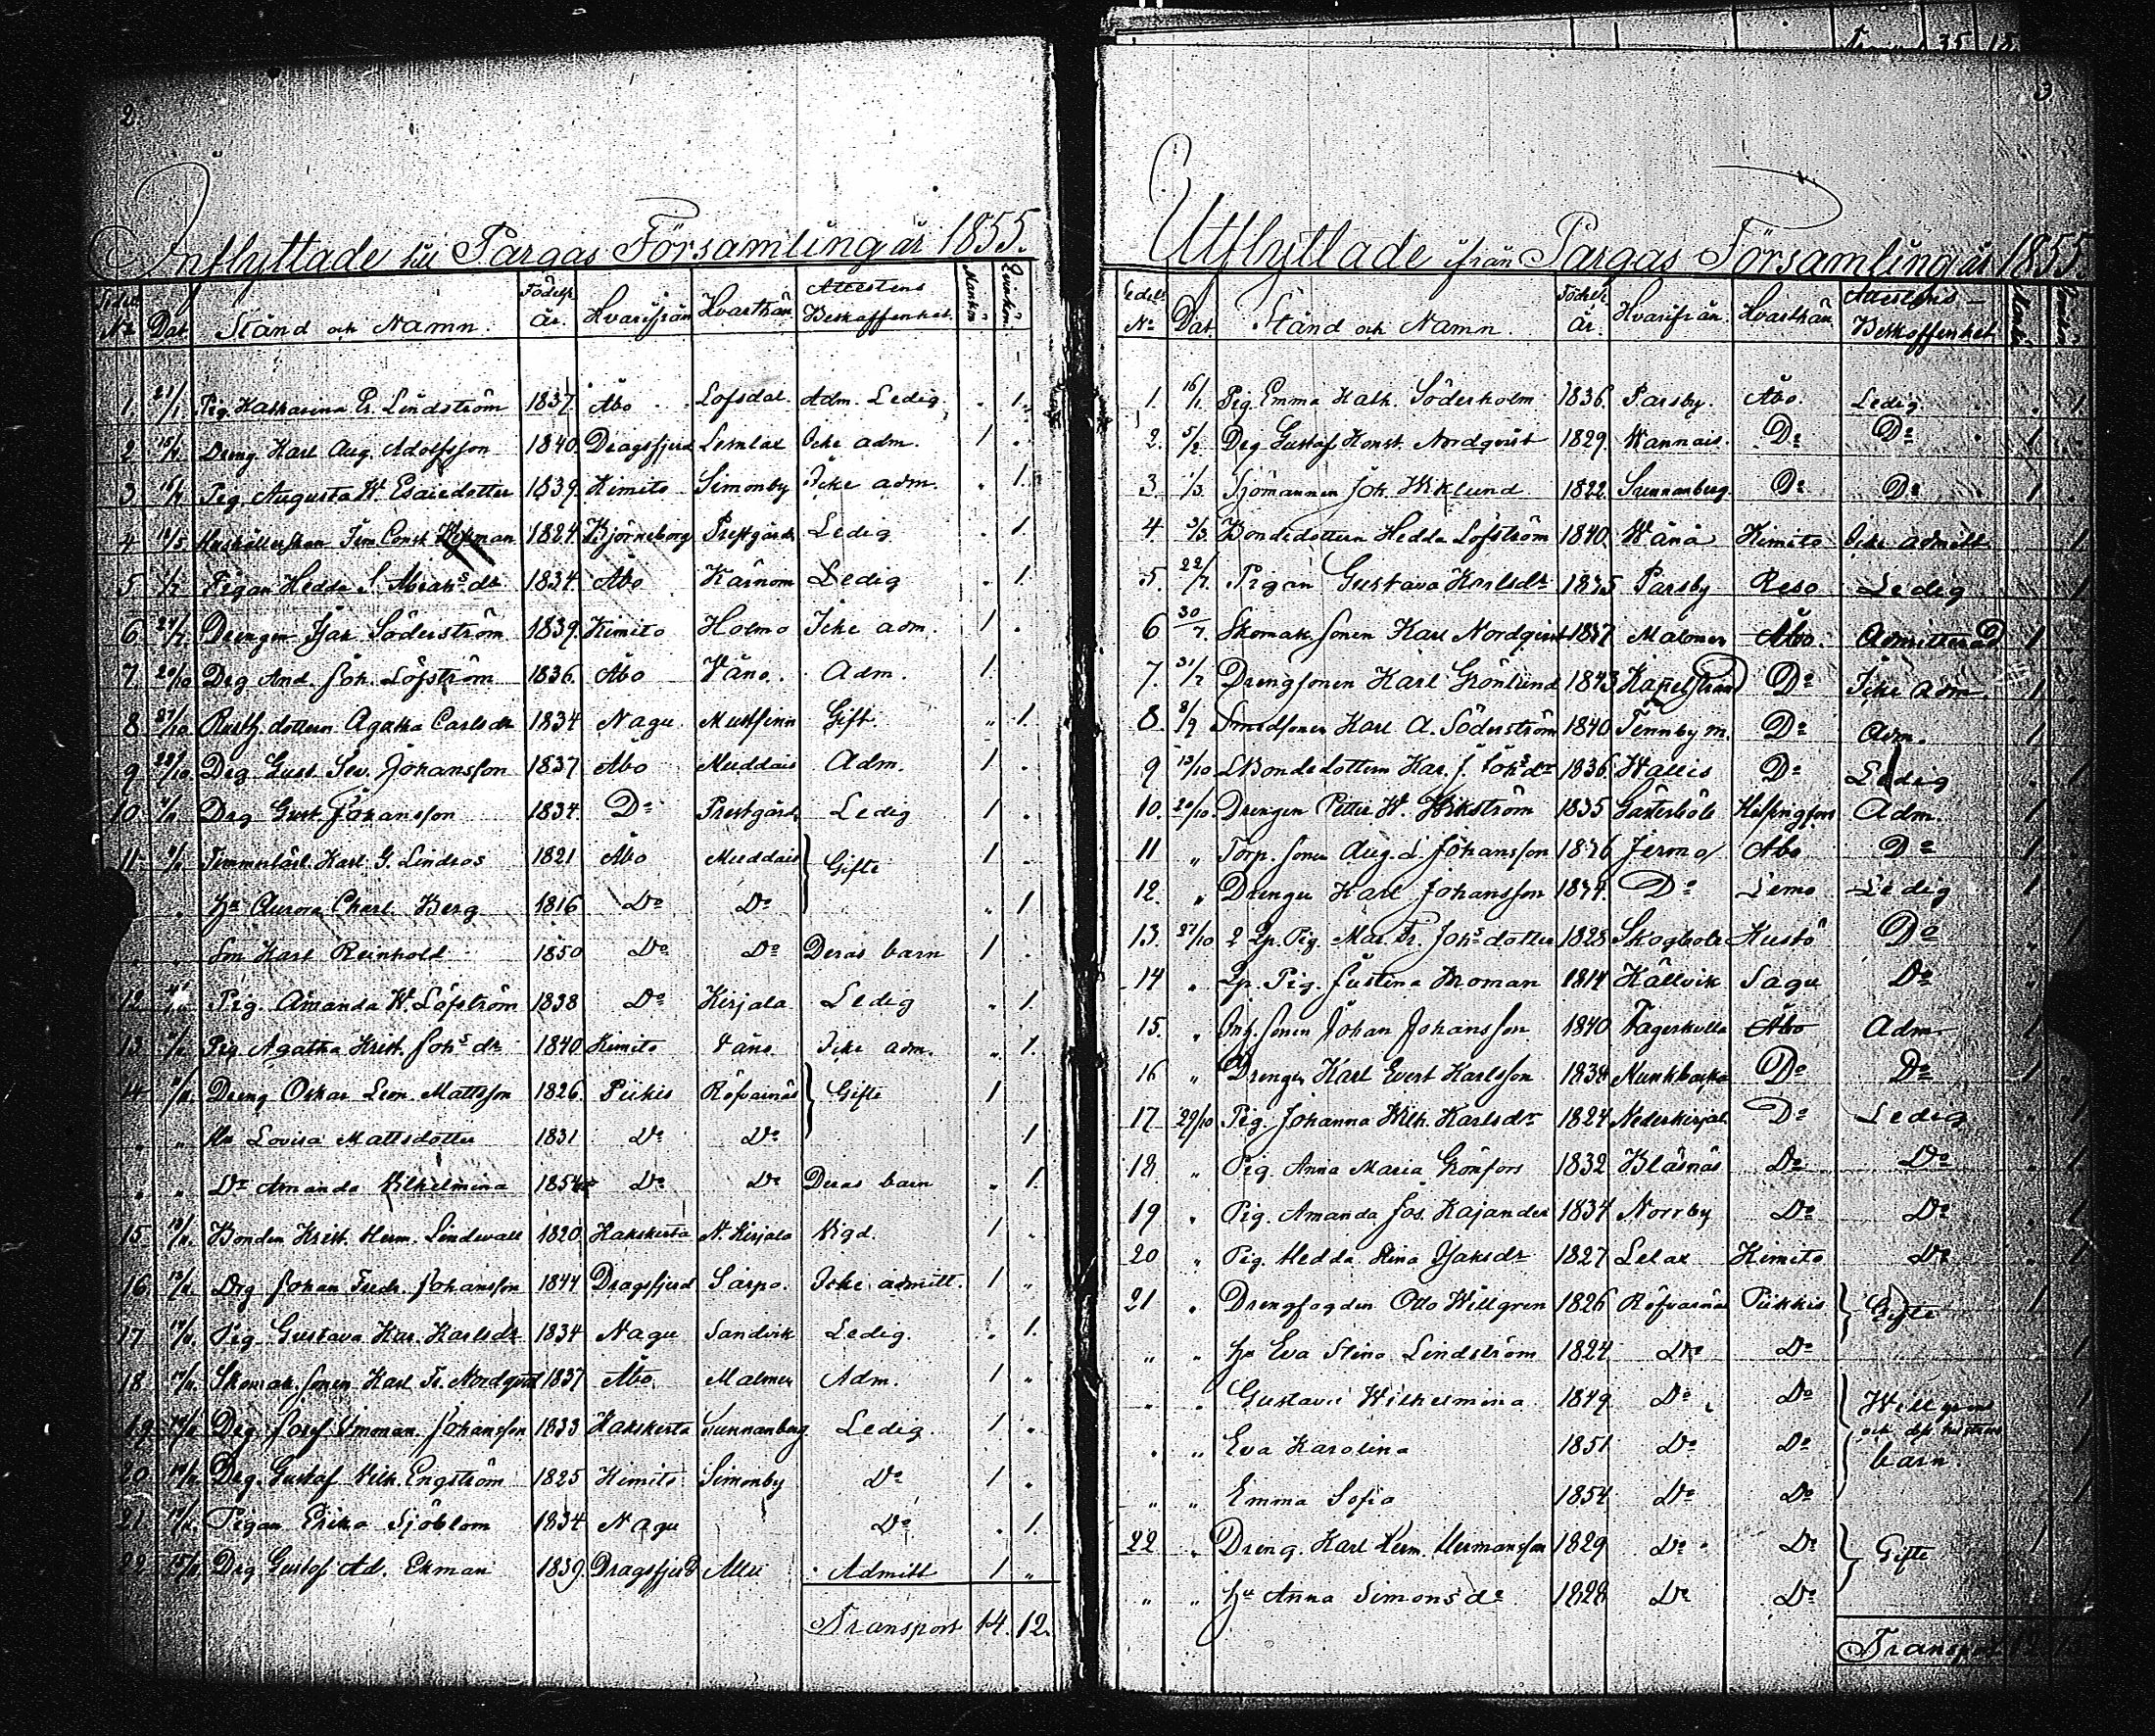 2
Inflyttade till Pargas Församling år 1855.
Sedel. No. Dat. Stånd och Namn. Födelse år. Hvarifrån Hvarthän Attestens Beskaffenhet. Mankön. Qvinkön.
1. 21/1 Pig. Katharina Lindström 1837 Åbo Lofsdal Adm. Ledig . 1.
2 Dreng Karl Aug. Adolfsson 1840. Dragsfjerd Lemlax Icke adm. 1 .
3 Pig. Augusta W. Esaiedotter 1839. Kimito Simonby Icke adm. . 1.
4 Hushållerskan Const. 1824 Björneborg Prestgård Ledig . 1.
5 Pigan Hedda S. Abrahsdr 1834 Åbo Kärnom Ledig . 1.
6 Drengen Isar Söderström 1839. Kimito Holmo Icke adm. 1 .
7. 20/10 Drg And. Joh. Löfström 1836. Åbo Väno. Adm. 1.
8 27/10 dottern Agatha Carlsdr 1834 Nagu Gift. „ 1.
9 28/10 Drg Gust. Sev. Johansson 1837 Åbo Muddais Adm. 1 .
10 Drg Gust. Johansson 1834. Do Prestgård Ledig 1 .
11 Karl G. Lindros 1821 Åbo Muddais } Gifte 1 ..
. Hu Aurora Charl. Berg 1816 Do Do „ 1
Son Karl Reinhold 1850 Do Do Deras barn 1 .
12 Pig. Amanda W. Löfström 1838 Do Kirjala Ledig „ 1.
13 Pig Agatha Krist. Johsdr 1840 Kimito Väno Icke adm. „ 1.
14 Dreng Oskar Leon. Mattsson 1826. Piikis Röfvarnäs } Gifte 1
„ „ Hu Lovisa Mattsdotter 1831 Do Do 1
„ „ Dr Amanda Vilhelmina 1854 Do Do Deras barn „ 1.
15. Bonden Krist. Herm. Lindevall 1820. Kakskerta N. Kirjala Vigd. 1 .
16. Drg Johan Fredr. Johansson 1844 Dragsfjerd Sarpo. Icke admitt. 1 „
17 Pig. Gustava Kar. Karlsdr 1834 Nagu Sandvik Ledig. „ 1.
18 Skomak. sonen Karl Fr. Nordqvist 1837 Åbo. Malmen Adm. 1 „
19. Drg. Josef Imman. Johansson 1833 Kakskerta Sunnanberg Ledig. 1 .
20 Drg. Gustaf Vilh. Engström 1825 Kimito Simonby Do 1 .
21. Pigan Erika Sjöblom 1834 Nagu Do . 1.
22 15/11 Drg Gustaf Ad. Ekman 1839. Dragsfjerd Admitt 1 „
Transport 14. 12.
3
Utflyttade ifrån Pargas Församling år 1855.
Sedels No Dat. Stånd och Namn. Födelse år. Hvarifrån. Hvarthän Attestens Beskaffenhet
1. 16/1. Pig. Emma Kath. Söderholm 1836. Parsby. Åbo. Ledig. . 1
2. 5/2 Drg Gustaf Konst. Nordqvist 1829. Wannais. Do Do 1
3. 1/3. Sjömannen Joh. Wiklund 1822. Sunnanberg. Do Do 1
4 3/3. Bondedottern Hedda Löfström 1840. Wänå Kimito Icke admitt. 1
5. 22/7. Pigan Gustava Karlsdr 1835 Parsby Reso Ledig 1
6 30/7. Skomak. sonen Karl Nordqvist 1837 Malmen Åbo. Admitterad 1
7. 31/7 Drengsonen Karl Grönlund 1843 Kapellstrand Do Icke adm 1
8. 8/9 Smedsonen Karl A. Söderström 1840 Tennby m. Do Adm. 1
9 13/10 Bondedottern Kar. J. Johsdr 1836. Wallis Do Ledig . 1
10. 20/10. Drengen Petter W. Wikström 1835 Gästerböle Helsingfors Adm. 1
11 „ Torp. sonen Aug. L. Johansson 1836 Jermo Åbo Do 1
12. „ Drengen Karl Johansson 1834. Do Lemo Ledig 1
13. 27/10 Pig. Mar. Fr. Johsdotter 1828 Skogböle Kustö Do „ 1
14 „ Pig. Justina Broman 1814 Hällvik Sagu Do „
15. „ Inh. sonen Johan Johansson 1840 Fagerkulla Åbo Adm. 1
16 „ Drengen Karl Evert Karlsson 1834 Munkbacka Do Do 1
17 29/10 Pig. Johanna Wilh. Karlsdr 1824 Nederkirjal. Do Ledig 1
18 „ Pig. Anna Maria Grönfors 1832 Bläsnäs Do Do 1
19 „ Pig. Amanda Jos. Kajander 1834 Norrby Do Do . 1
20 „ Pig. Hedda Stina Isaksdr 1827 Lelax Kimito Do „ 1
21 „ Drengfogden Otto Willgren 1826 Röfvarnäs Piikkis } Gifte 1
„ „ Hu Eva Stina Lindström 1824 Do Do 1
„ „ Gustava Wilhelmina 1849 Do Do } Willgrens och dess hustrus barn. 1
„ „ Eva Karolina 1851 Do Do 1
„ „ Emma Sofia 1854 Do Do 1
22 „ Dreng. Karl Herm. Hermansson 1829 Do Do } Gifte 1
„ „ Hu Anna Simonsdr 1828 Do Do
Transport